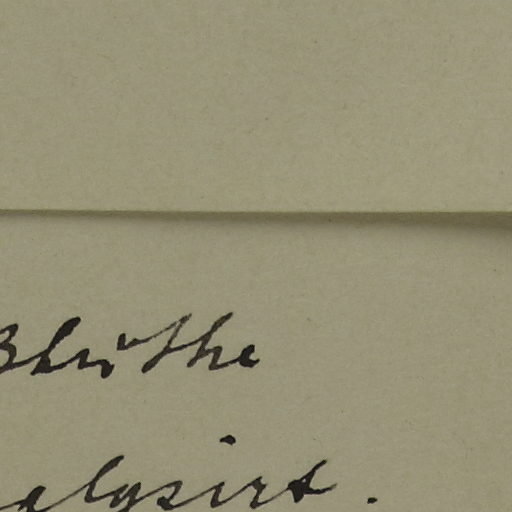 Blüthe
alysirt.